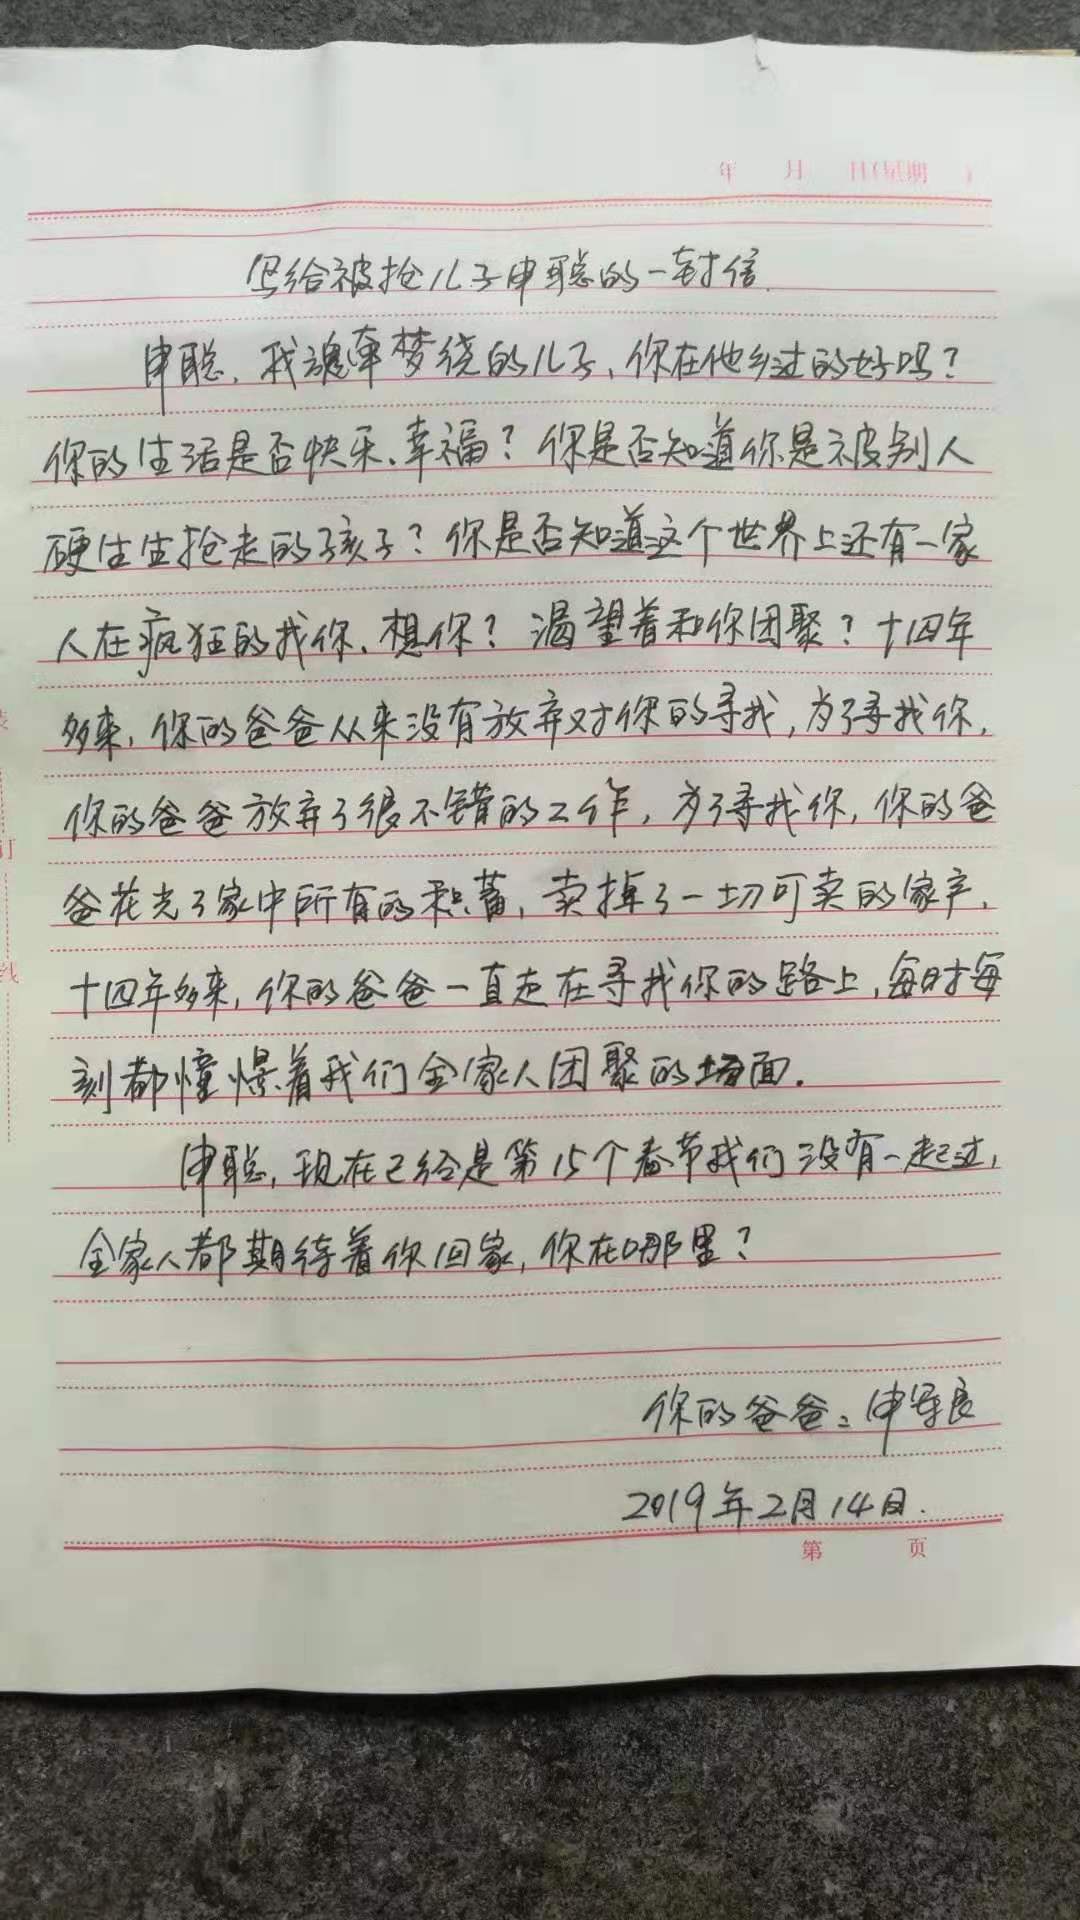 年 月 日(星期 )
写给被抢儿子申聪的一封信.
申聪,我魂牵梦绕的儿子,你在他乡过的好吗?
你的生活是否快乐、幸福?你是否知道你是被别人
硬生生抢走的孩子?你是否知道这个世界上还有一家
人在疯狂的找你、想你?渴望着和你团聚?十四年
多来,你的爸爸从来没有放弃对你的寻找,为了寻找你,
你的爸爸放弃了很不错的工作,为了寻找你,你的爸
爸花光了家中所有的积蓄,卖掉了一切可卖的家产,
十四年多来,你的爸爸一直走在寻找你的路上,每时每
刻都憧憬着我们全家人团聚的场面.
申聪,现在已经是第15个春节我们没有一起过,
全家人都期待着你回家,你在哪里?
你的爸爸:申军良
2019年2月14日.
第 页
订
线